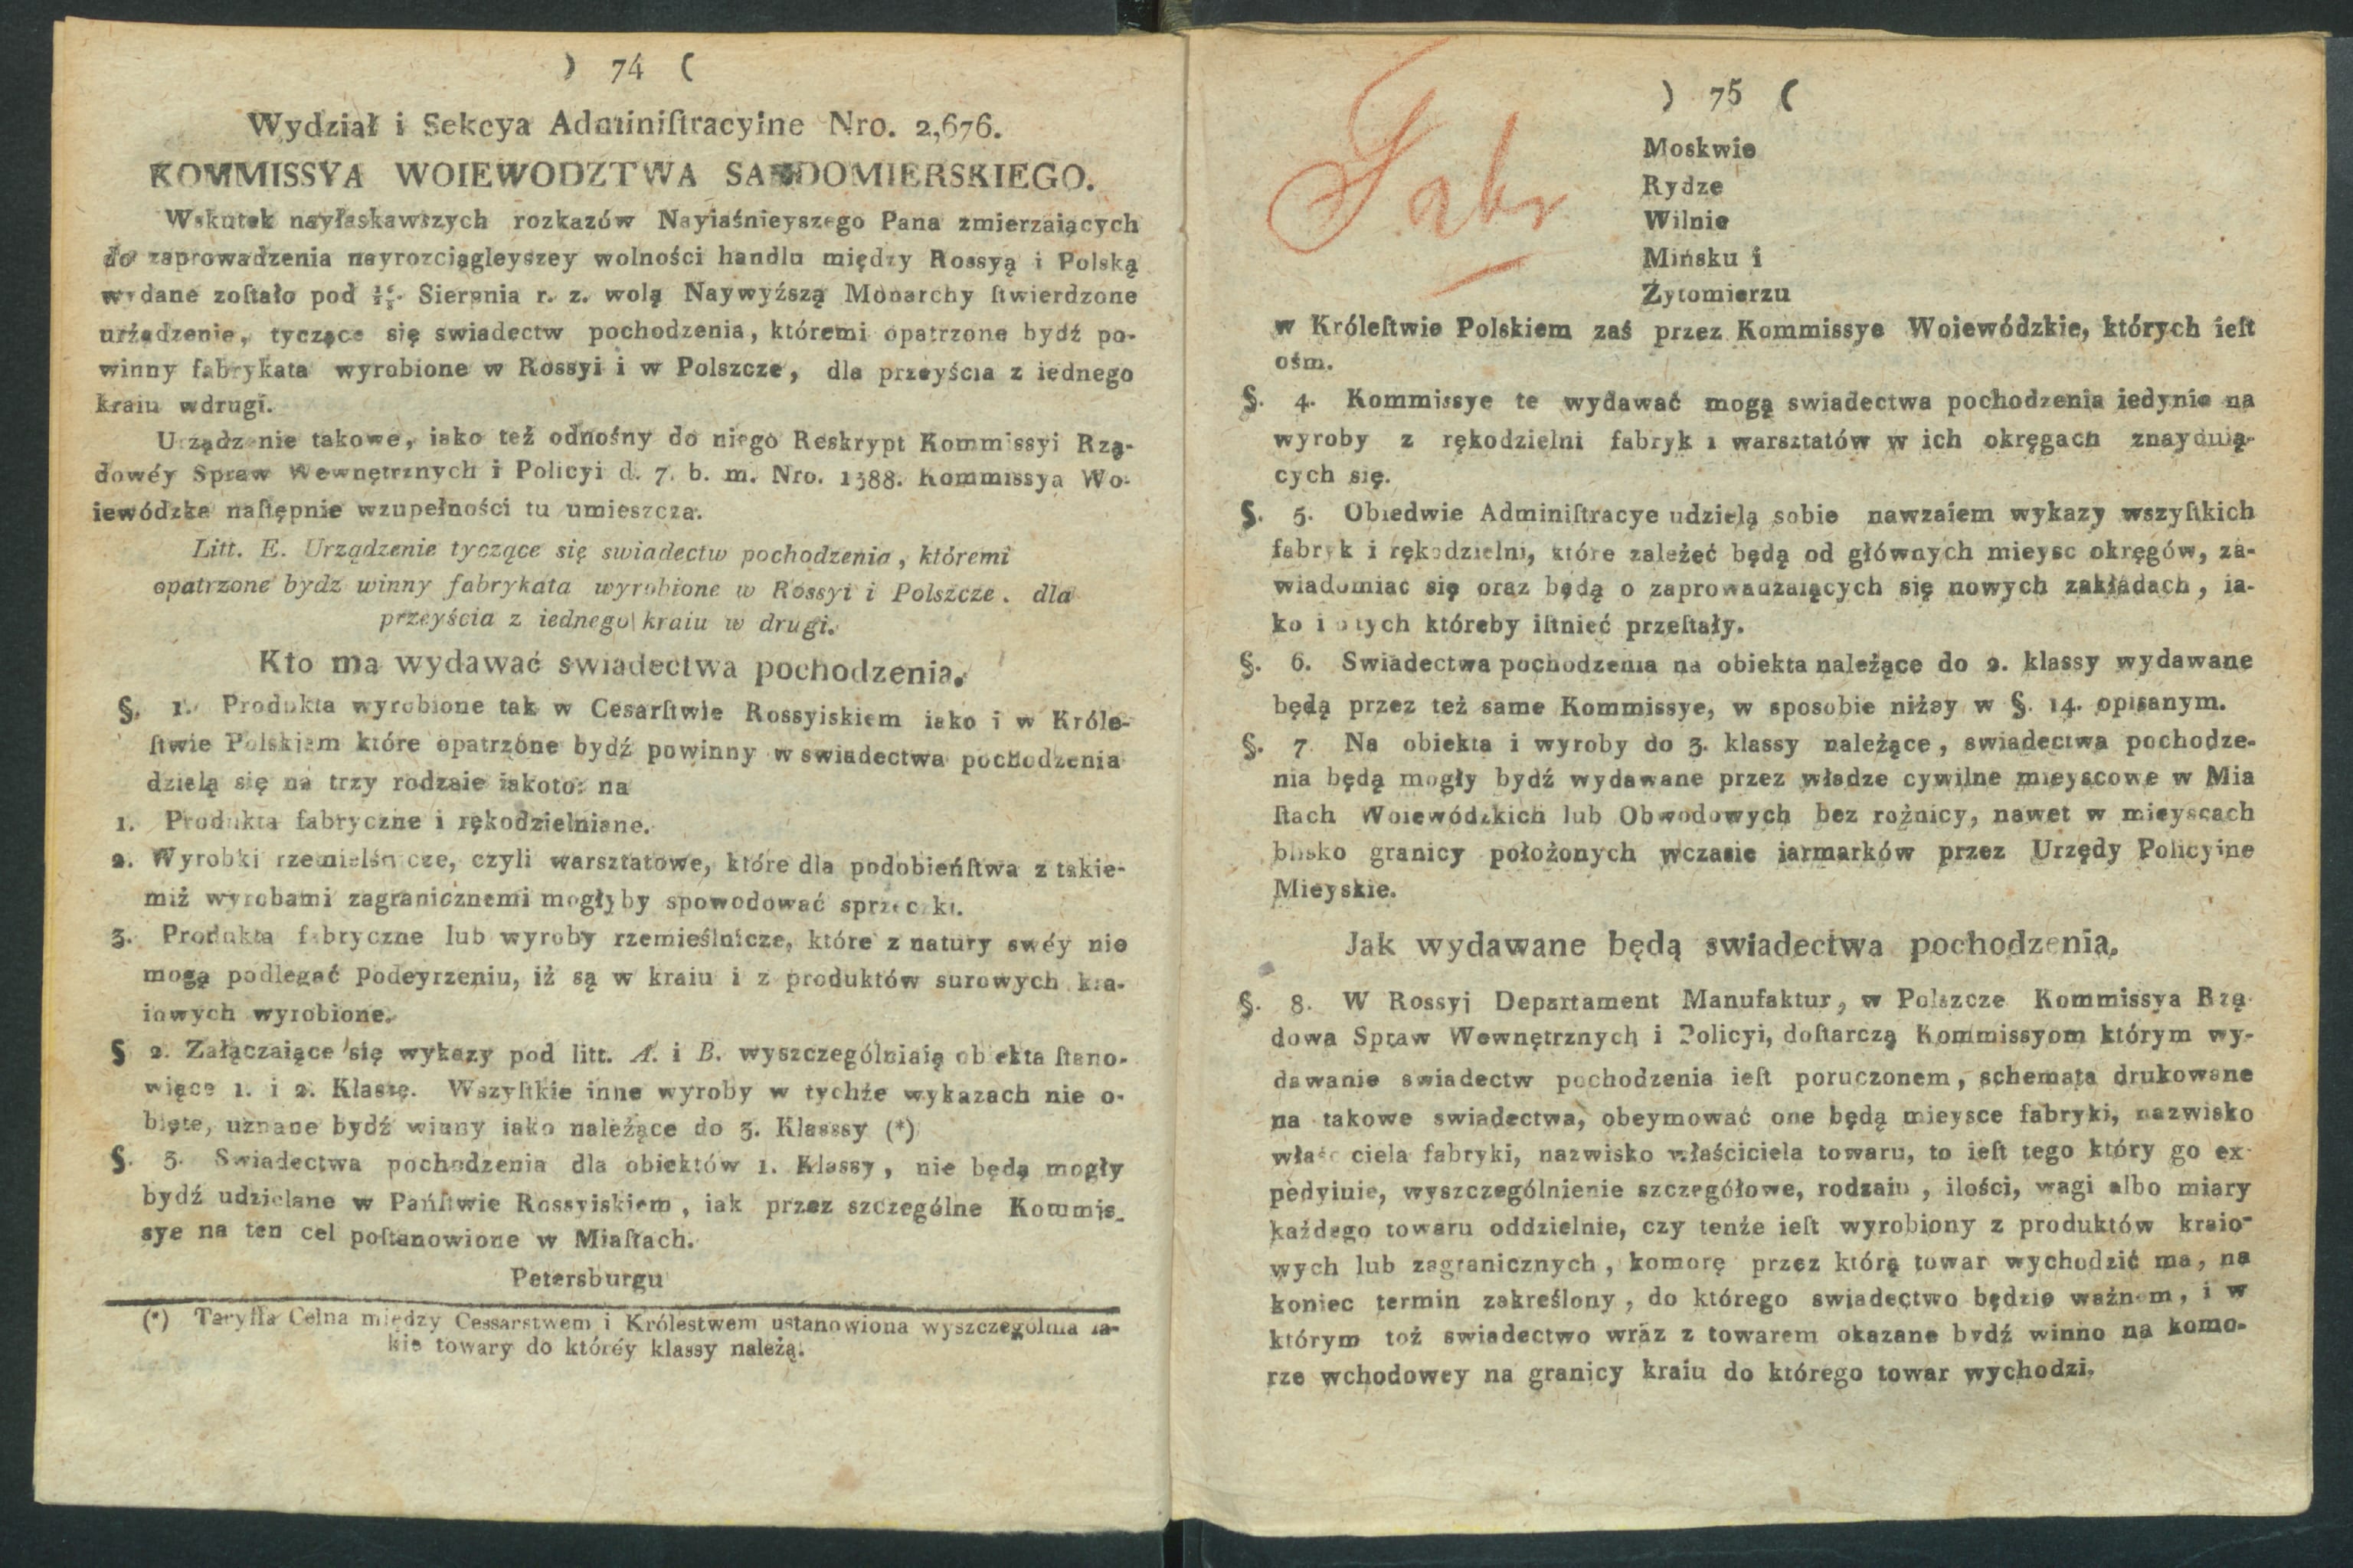 ) 74 (
Wydział i Sekcya Adminiſtracyine Nro. 2,676.
KOMMISSYA WOIEWODZTWA SANDOMIERSKIEGO.
Wskutek nayłaskawszych rozkazów Nayiaśnieyszego Pana zmierzaiących
do zaprowadzenia nayrozciągleyszey wolności handlu między Rossyą i Polską
wydane zoſtało pod Sierpnia r. z. wolą Naywyższą Monarchy ſtwierdzone
urżądzenie, tyczące się swiadectw pochodzenia, któremi opatrzone bydź po-
winny fabrykata wyrobione w Rossyi i w Polszcze, dla przeyścia z iednego
kraiu wdrugi.
Urządzenie takowe, iako też odnośny do niego Reskrypt Kommissyi Rzą-
dowéy Spraw Wewnętrznych i Policyi d. 7. b. m. Nro. 1388. Kommissya Wo-
iewódzka naſtępnie wzupełności tu umieszcza.
Litt. E. Urządzenie tyczące się swiadectw pochodzenia, któremi
opatrzone bydz winny fabrykata wyrobione w Rossyi i Polszcze. dla
przeyścia z iednego kraiu w drugi.
Kto ma wydawać swiadectwa pochodzenia.
§. 1. Produkta wyrobione tak w Cesarſtwie Rossyiskiem iako i w Króle-
ſtwie Polskiem które opatrzone bydź powinny w swiadectwa pochodzenia
dzielą się na trzy rodzaie iakoto: na
1. Produkta fabryczne i rękodzielniane.
2. Wyrobki rzemieślnicze, czyli warsztatowe, które dla podobieńſtwa z takie-
miż wyrobami zagranicznemi mogłyby spowodować sprzeczki.
3. Produkta fabryczne lub wyroby rzemieślnicze, które z natury swéy nie
mogą podlegać podeyrzeniu, iż są w kraiu i z produktów surowych kra-
iowych wyrobione.
§ 2. Załączaiące się wykazy pod litt. A. i B. wyszczególniaią obiekta ſtano-
wiące 1. i 2. Klassę. Wszyſtkie inne wyroby w tychże wykazach nie o-
bięte, uznane bydź winny iako należące do 3. Klasssy (*)
§. 3. Swiadectwa pochodzenia dla obiektów 1. Klassy, nie będą mogły
bydź udzielane w Pańſtwie Rossyiskiem, iak przez szczególne Kommis-
sye na ten cel poſtanowione w Miaſtach.
Petersburgu
(*) Taryffa Celna między Cessarstwem i Królestwem ustanowiona wyszczególnia ia-
kie towary do któréy klassy należą.
) 75 (
Fabr
Moskwie
Rydze
Wilnie
Mińsku i
Żytomierzu
w Króleſtwie Polskiem zaś przez Kommissye Woiewódzkie, których ieſt
ośm.
§. 4. Kommissye te wydawać mogą swiadectwa pochodzenia iedynie na
wyroby z rękodzielni fabryk i warsztatów w ich okręgach znayduią-
cych się.
§. 5. Obiedwie Adminiſtracye udzielą sobie nawzaiem wykazy wszyſtkich
fabryk i rękodzielni, które zależęć będą od głównych mieysc okręgów, za-
wiadomiać się oraz będą o zaprowadzaiących się nowych zakładach, ia-
ko i o tych któreby iſtnieć przeſtały.
§. 6. Swiadectwa pochodzenia na obiekta należące do 2. klassy wydawane
będą przez też same Kommissye, w sposobie niżey w §. 14. opisanym.
§. 7 Na obiekta i wyroby do 3. klassy należące, swiadectwa pochodze-
nia będą mogły bydź wydawane przez władze cywilne mieyscowe w Mia
ſtach Woiewódzkich lub Obwodowych bez rożnicy, nawet w mieyscach
blisko granicy położonych wczasie iarmarków przez Urzędy Policyine
Mieyskie.
Jak wydawane będą swiadectwa pochodzenia.
§. 8. W Rossyi Departament Manufaktur, w Polszcze Kommissya Rzą-
dowa Spraw Wewnętrznych i Policyi, doſtarczą Kommissyom którym wy-
dawanie swiadectw pochodzenia ieſt poruczonem, schemata drukowane
na takowe swiadectwa, obeymować one będą mieysce fabryki, nazwisko
właściciela fabryki, nazwisko właściciela towaru, to ieſt tego który go ex-
pedyiuie, wyszczególnienie szczegółowe, rodzaiu, ilości, wagi albo miary
każdego towaru oddzielnie, czy tenże ieſt wyrobiony z produktów kraio-
wych lub zagranicznych, komorę przez którą towar wychodzić ma, na
koniec termin zakreślony, do którego swiadectwo będzie ważnem, i w
którym toż swiadectwo wraz z towarem okazane bydź winno na komo-
rze wchodowey na granicy kraiu do którego towar wychodzi.